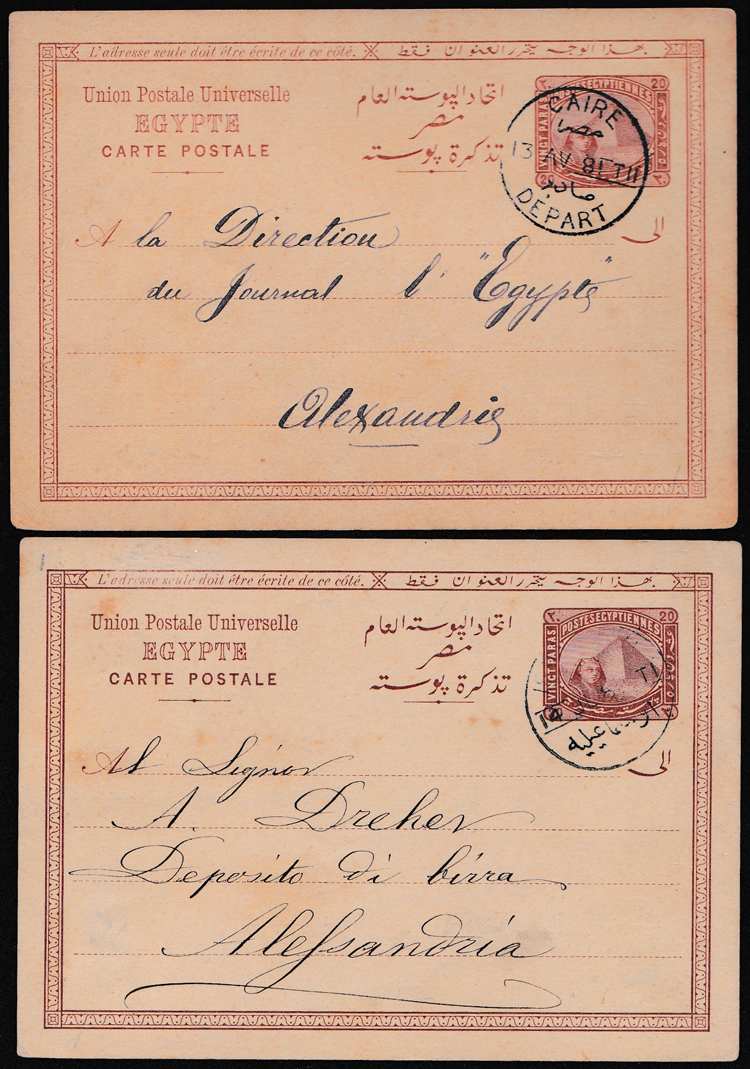 L'adresse seule doit être écrite de ce côté. بهذا الوجه يتحرر العنوان فقط
Union Postale Universelle
EGYPTE
CARTE POSTALE
اتحاد البوسته العام
مصر
تذكرة بوسته
٢٠ 20
POSTES EGYPTIENNES
VINGT PARAS
20 ٢٠
CAIRE
مصر
13 AV 81 T11
DEPART
الى
A la Direction
du Journal l' "Egypte"
Alexandrie
L'adresse seule doit être écrite de ce côté. بهذا الوجه يتحرر العنوان فقط
Union Postale Universelle
EGYPTE
CARTE POSTALE
اتحاد البوسته العام
مصر
تذكرة بوسته
٢٠ 20
POSTES EGYPTIENNES
VINGT PARAS
٢٠
14
TI
اسماعيلية
الى
Al Signor
A. Dreher
Deposito di birra
Alessandria